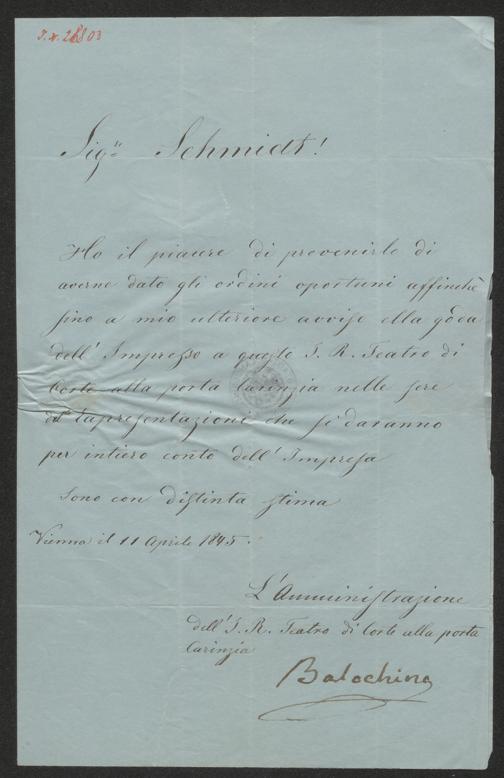 J. N. 28803
Sigre Schmidt!
Ho il piacere di prevenirla di
averne dato gli ordini oportuni affinchè
fino a mio ulteriore avviso ella goda
dell' Impresso a questo I. R. Teatro di
Corte alla porta Carinzia nelle sere
di rapresentazioni che si daranno
per intiero conto dell' Impresa
Sono con distinta stima
Vienna il 11 Aprile 1845.
L'Amministrazione
dell' I. R. Teatro di Corte alla porta
Carinzia
Balochino